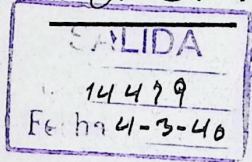 SALIDA
14479
Fecha 4-3-40